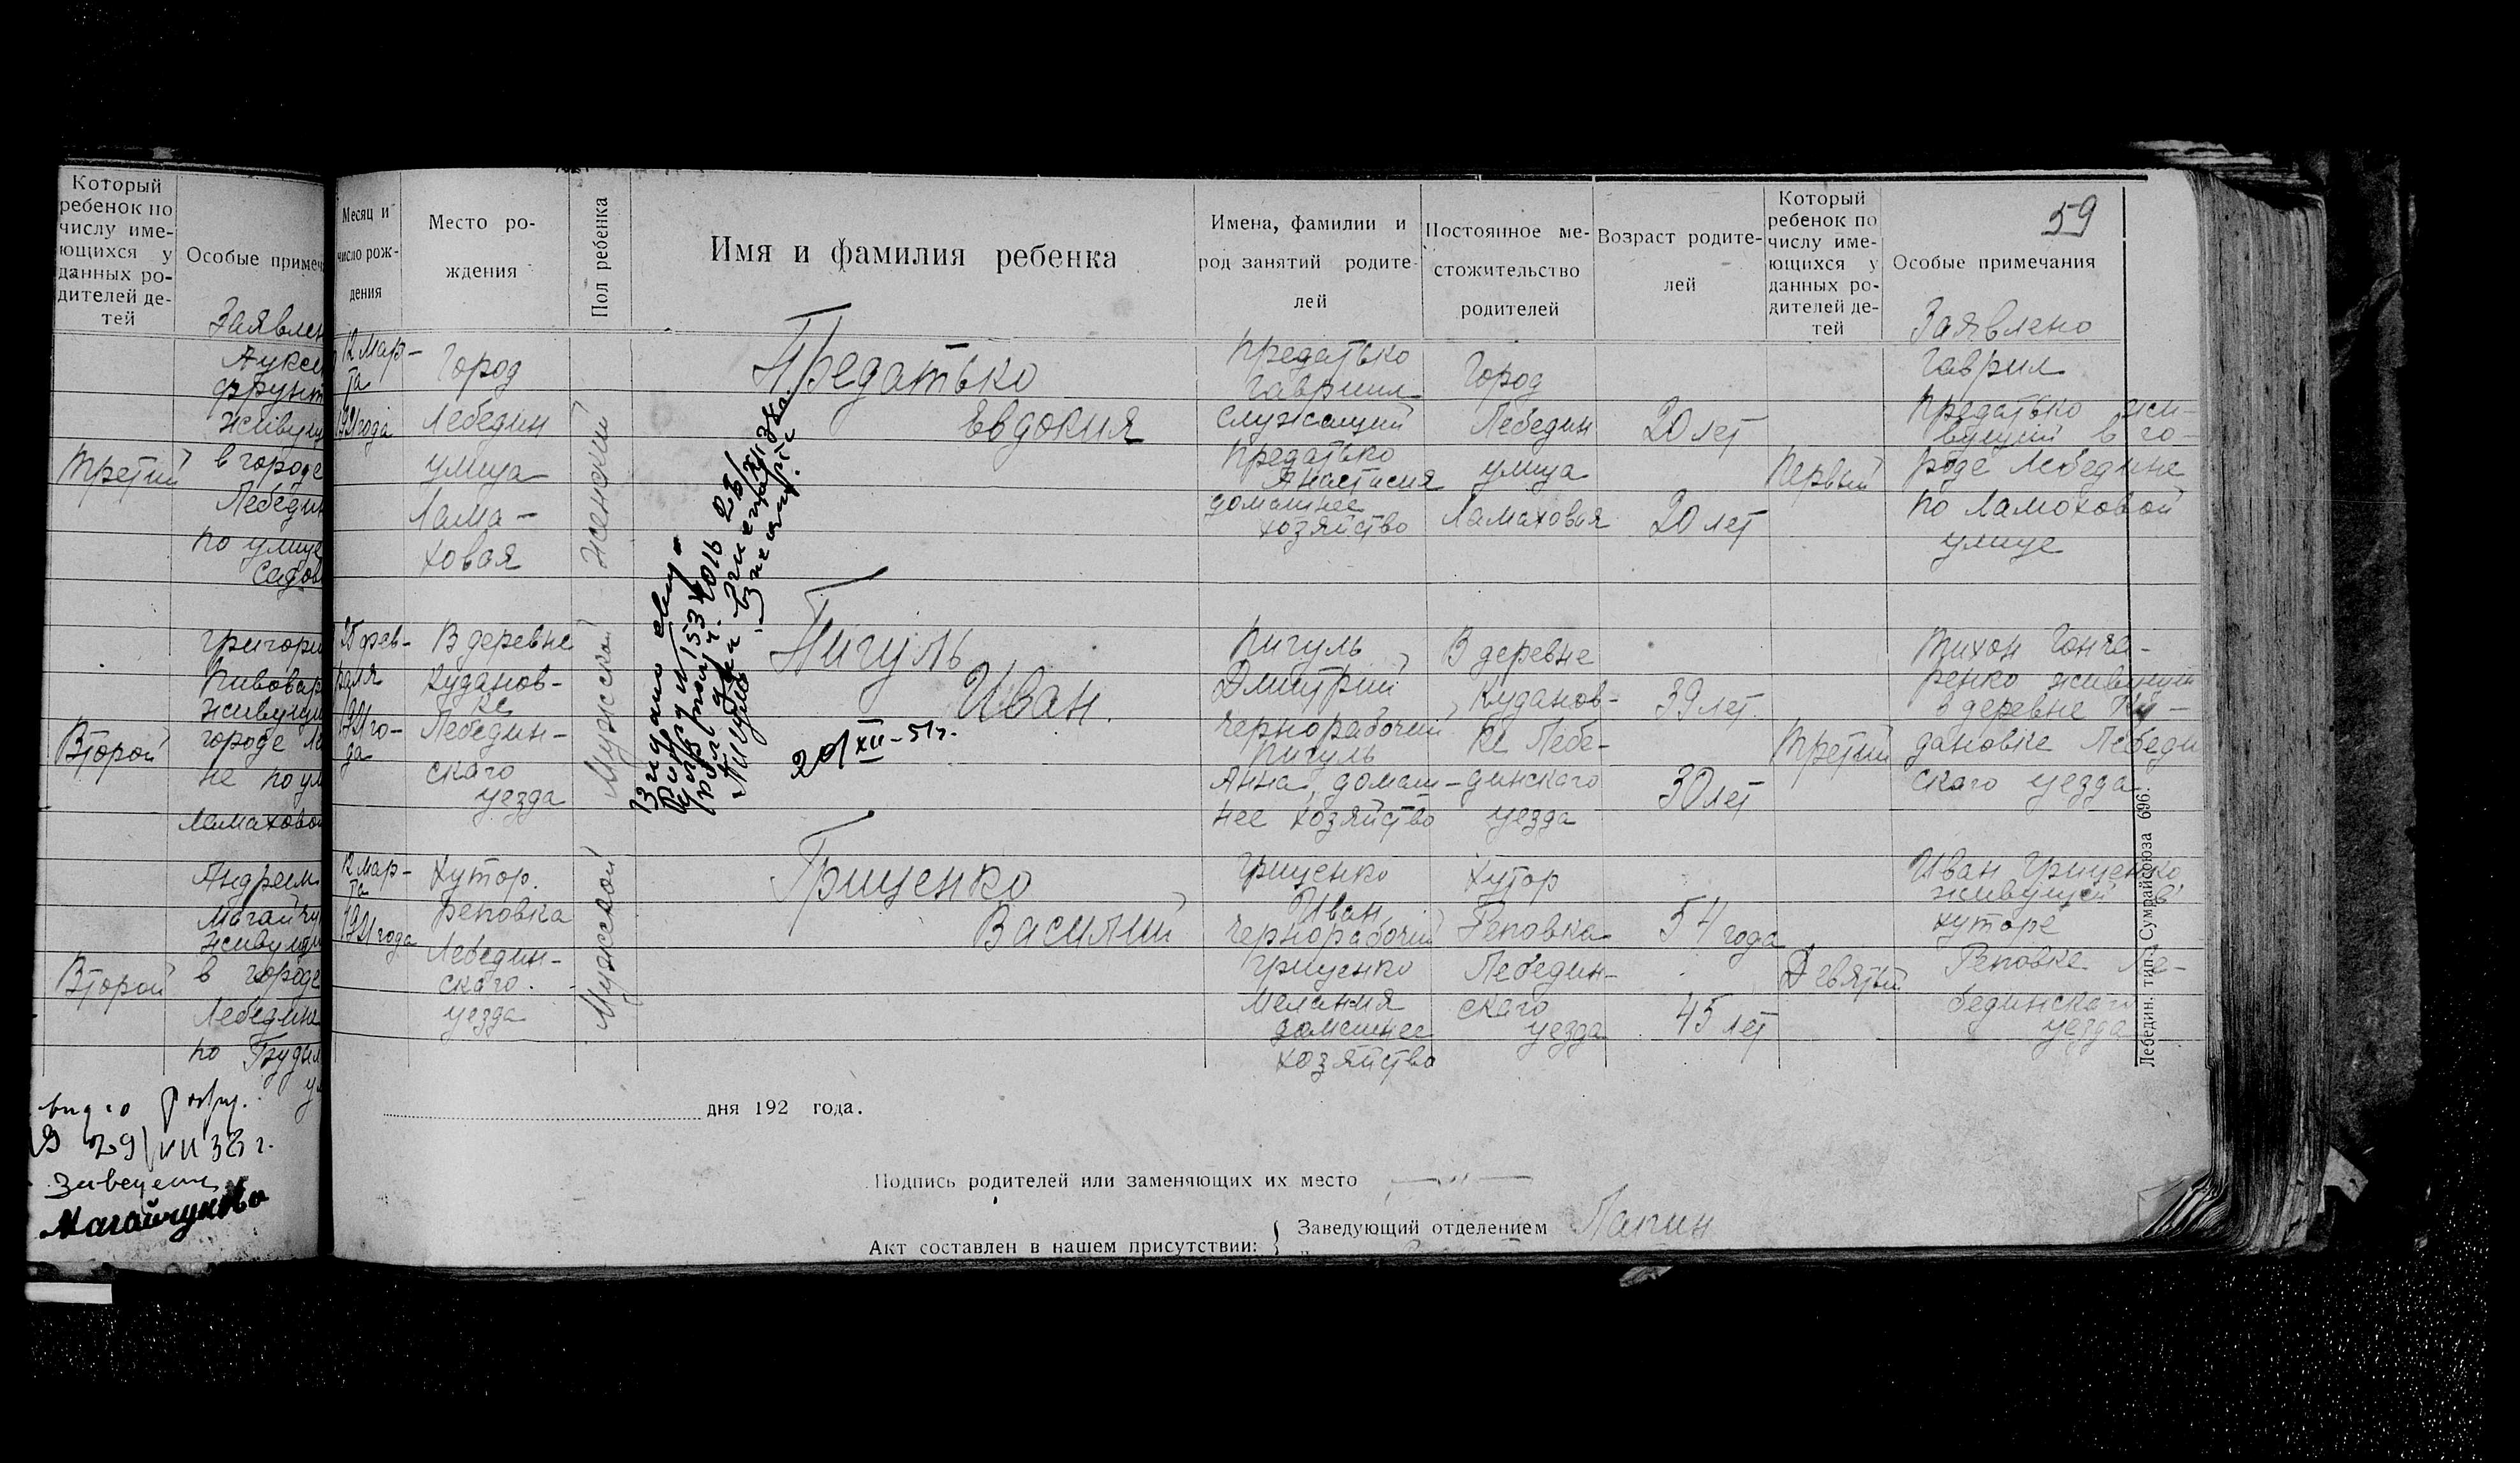 Который
ребенок по
числу име-
ющихся у
данных ро-
дителей де-
тей
Особые примеч
Заявлен
фрунт
живущ
Третий
в городе
Лебедин
по улице
Садов
Григори
Пивовар
живущи
Второй
городе Ле
не по ул
Ламаховой
Андреем
живущи
Второй
в городе
Лебедине
по
29/VII 38 г.
59
Месяц и
число рож-
дения
Место ро-
ждения
Пол ребенка
Имя и фамилия ребенка
Имена, фамилии и
род занятий родите-
лей
Постоянное ме-
стожительство
родителей
Возраст родите-
лей
Который
ребенок по
числу име-
ющихся у
данных ро-
дителей де-
тей
Особые примечания
Заявлено
12 мар-
та
1921 года
Город
Лебедин
улица
Лама-
ховая
Женский
Предатько
Евдокия
Предатько
Гавриил
служащий
Предатько
Анастасия
домашнее
хозяйство
Город
Лебедин
улица
Ламаховая
20 лет
20 лет
Первый
Гаврил
Предатько жи-
вущий в го-
роде Лебедине
по Ламоховой
улице
25 фев-
раля
1921 го-
да
В деревне
Кудановке-
ке
Лебедин-
скаго
уезда
Мужской
Пигуль
Иван.
20/XII-51г.
Пигуль
Дмитрий
чернорабочий
Пигуль
Анна, домаш-
нее хозяйство
В деревне
Куданов-
ке Лебе-
динскаго
уезда
39 лет
30 лет
Третий
Тихон Гонча-
ренко живущий
в деревне Ку-
дановке Лебеди
скаго уезда
12 мар-
та
1921 года
Хутор.
Реповка
Лебедин-
скаго.
уезда
Мужской
Грищенко
Василий
Грищенко
Иван
чернорабочий
Грищенко
Мелания
домашнее
хозяйство
Хутор
Реповка
Лебедин-
скаго
уезда
54 года
45 лет
Девятый
Иван Грищенко
живущей в
хуторе
Реповке Ле-
бединскаго
уезда
Лебедин. тип. Сумрайсоюза 696.
дня 192 года.
Подпись родителей или заменяющих их место
Акт составлен в нашем присутствии:
Заведующий отделением